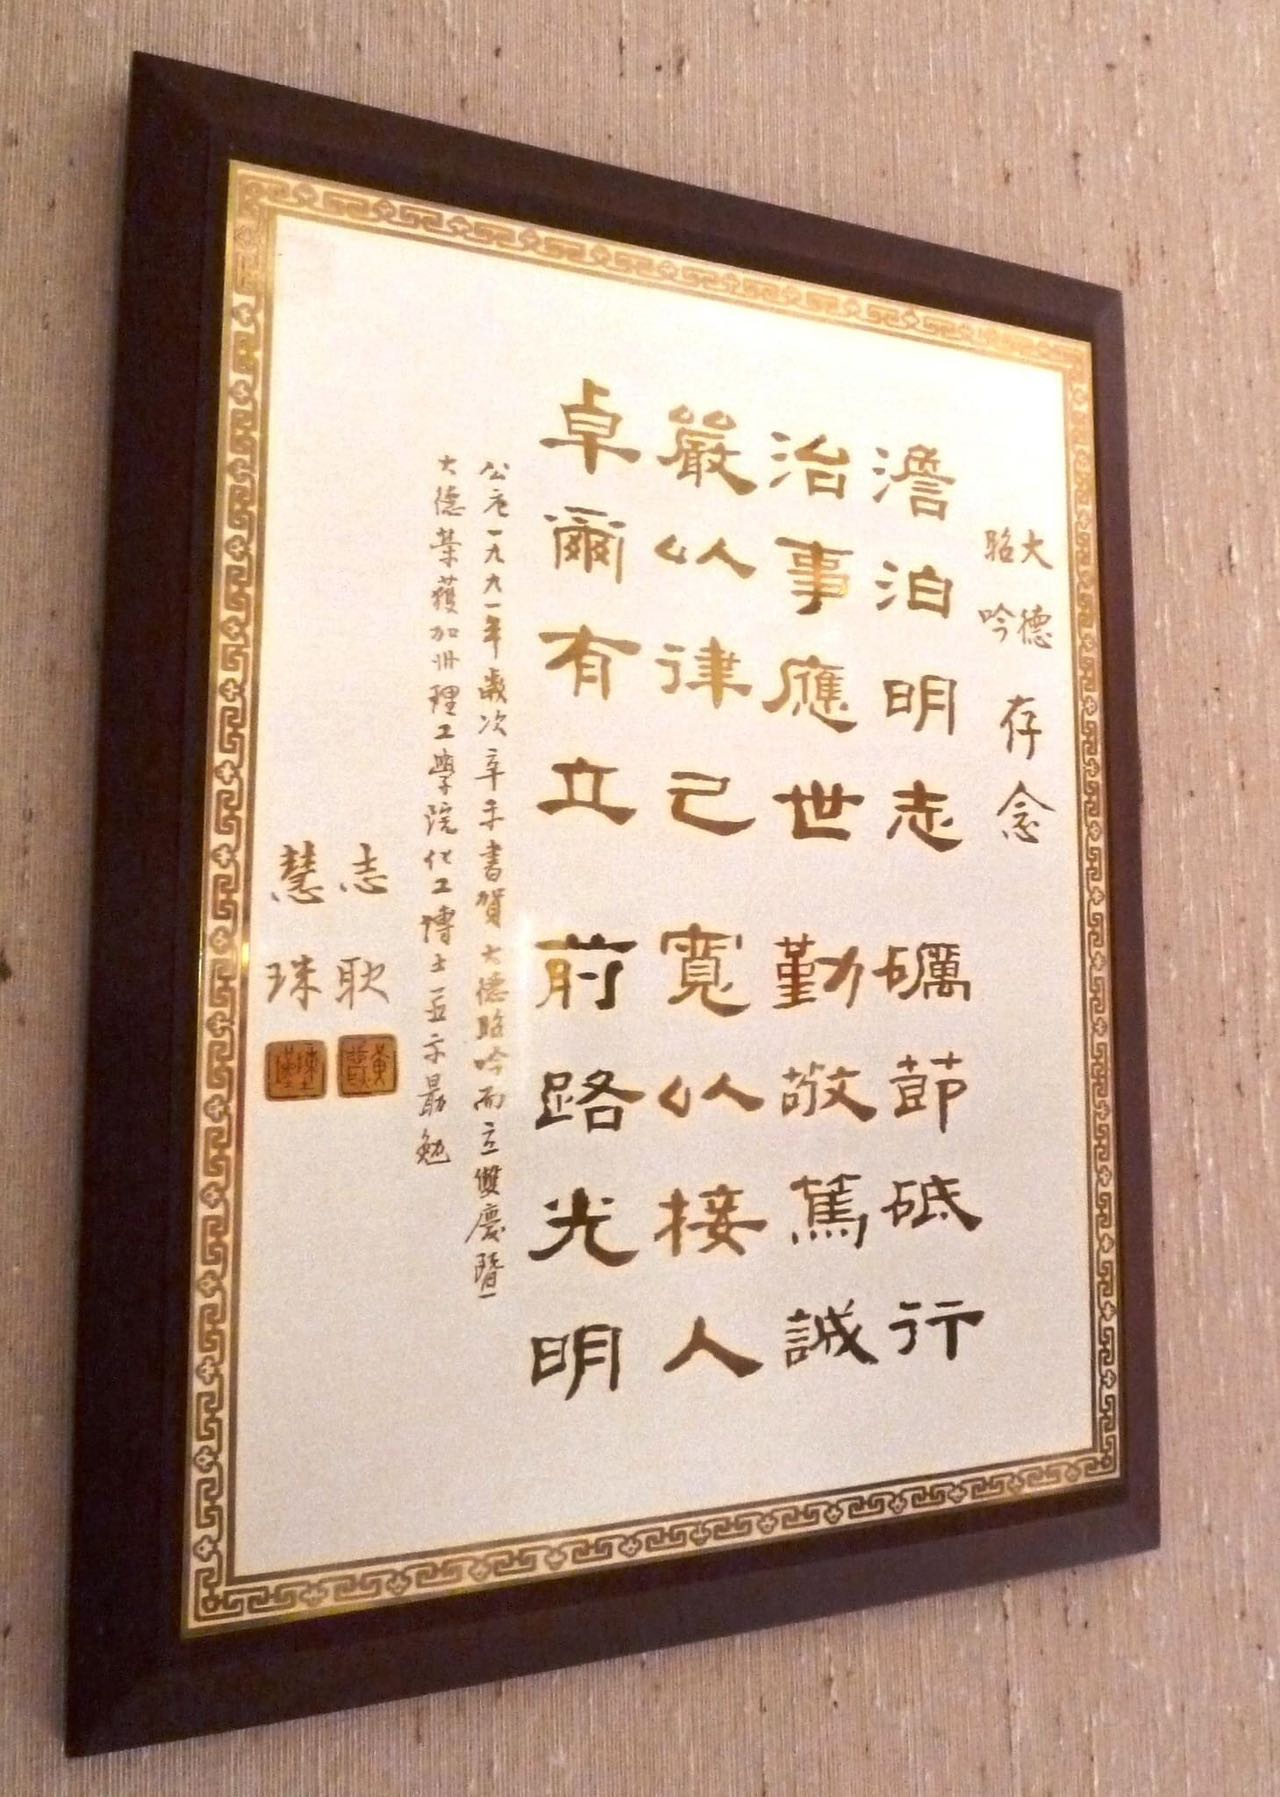 大德
昭吟
存念
澹泊明志礪節砥行
治事應世勤敬篤誠
嚴以律己寬以接人
卓爾有立前路光明
公元一九九一年歲次辛未書賀大德昭吟而立雙慶暨
大德榮獲加州理工學院化工博士並示勗勉
志耿
慧珠